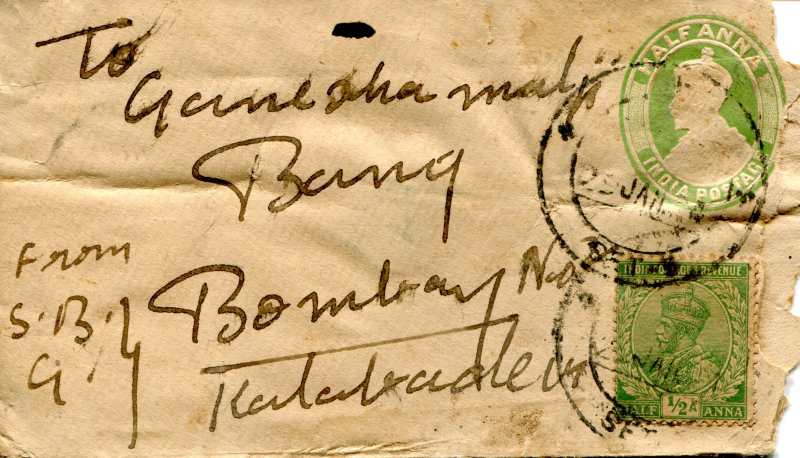 To
Ganeshamalji
Bang
Bombay No 2
Kalabadevi
From
S. B. J
G
HALF ANNA
INDIA POSTAGE
25 JAN
INDIA POSTAGE & REVENUE
HALF 1/2A ANNA